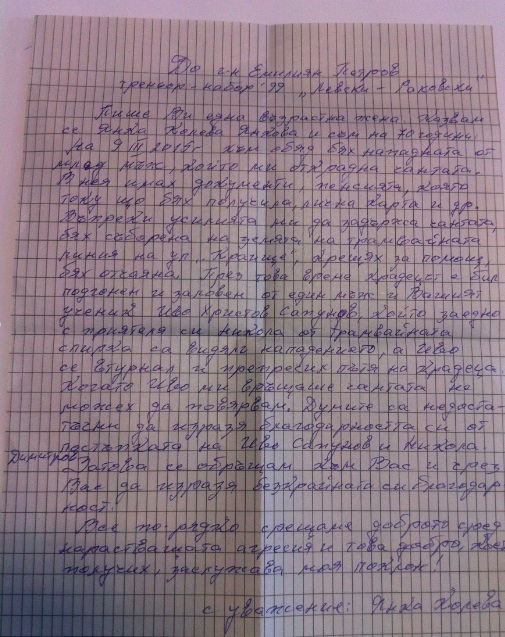 До г-н Емилиян Петров
треньор-набор '99 "Левски - Раковски"
Пише Ви една възрастна жена. Казвам
се Янка Колева Янкова и съм на 70 години
На 9 III 2015г. към обяд бях нападната от
млад мъж, който ми открадна чантата.
В нея имах документи, пенсията, която
току що бях получила, лична карта и др.
Въпреки усилията ми да задържа чантата,
бях съборена на земята на трамвайната
линия на ул. "Крапище", крещях за помощ,
бях отчаяна. През това време крадецът е бил
подгонен и заловен от един мъж и Вашият
ученик Иво Христов Сакунов, който заедно
с приятеля си Никола от трамвайната
спирка са видяли нападението, а Иво
се втурнал и препречил пътя на крадеца.
Когато Иво ми връщаше чантата не
можех да повярвам. Думите са недоста-
тъчни да изразя благодарността си от
постъпката на Иво Сакунов и Никола
Димитров
Затова се обръщам към Вас и чрез
Вас да изразя безкрайната си благодар
ност!
Все по-рядко срещаме доброто сред
нарастващата агресия и това добро, което
получих, заслужава моя поклон!
с уважение: Янка Колева